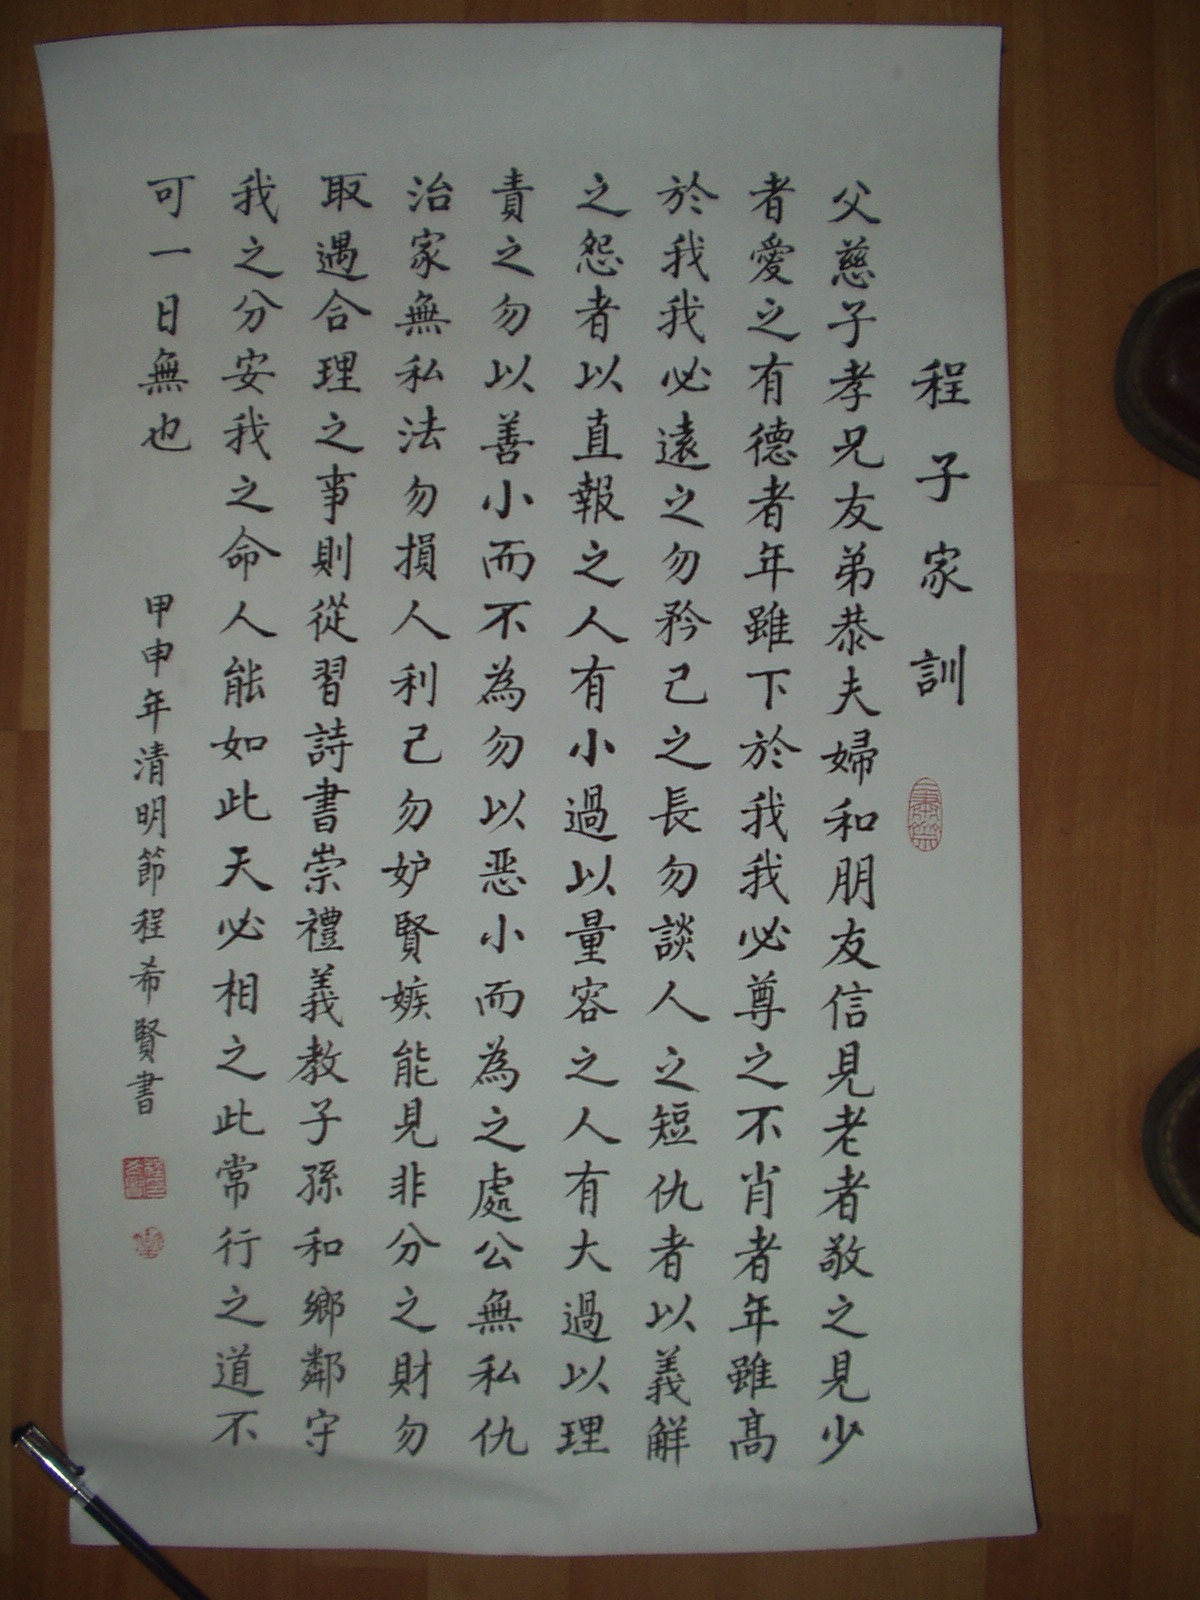 程子家訓
父慈子孝兄友弟恭夫婦和朋友信見老者敬之見少
者愛之有德者年雖下於我我必尊之不肖者年雖高
於我我必遠之勿矜己之長勿談人之短仇者以義解
之怨者以直報之人有小過以量容之人有大過以理
責之勿以善小而不為勿以恶小而為之處公無私仇
治家無私法勿損人利己勿妒賢嫉能見非分之財勿
取遇合理之事則從習詩書崇禮義教子孫和鄉鄰守
我之分安我之命人能如此天必相之此常行之道不
可一日無也
甲申年清明節程希賢書